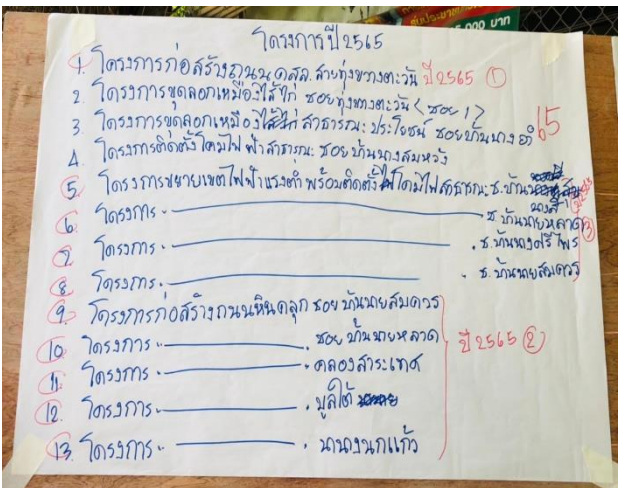 5,000 บาท
โครงการปี 2565
1. โครงการก่อสร้างถนน คสล. สายทุ่งขวางตะวัน ปี 2565 ①
2. โครงการขุดลอกเหมืองไส้ไก่ ซอยทุ่งขวางตะวัน < ซอย 1 >
3. โครงการขุดลอกเหมืองไส้ไก่ สาธารณะประโยชน์ ซอยบ้านนาง 65
4. โครงการติดตั้งโคมไฟฟ้าสาธารณะ ซอยบ้านนางสมหวัง
5. โครงการขยายเขตไฟฟ้าแรงต่ำ พร้อมติดตั้งโคมไฟสาธารณะ ซ.บ้าน
6. โครงการ - ซ.บ้านนายหลาด
7. โครงการ - ซ.บ้านนางศรีไพร ③
8. โครงการ - ซ.บ้านนายสมควร
9. โครงการก่อสร้างถนนหินคลุก ซอยบ้านนายสมควร
10. โครงการ - ซอยบ้านนายหลาด ปี 2565 ②
11. โครงการ - คลองสาระเทศ
12. โครงการ - มูลใต้
13. โครงการ - นานางนกแก้ว